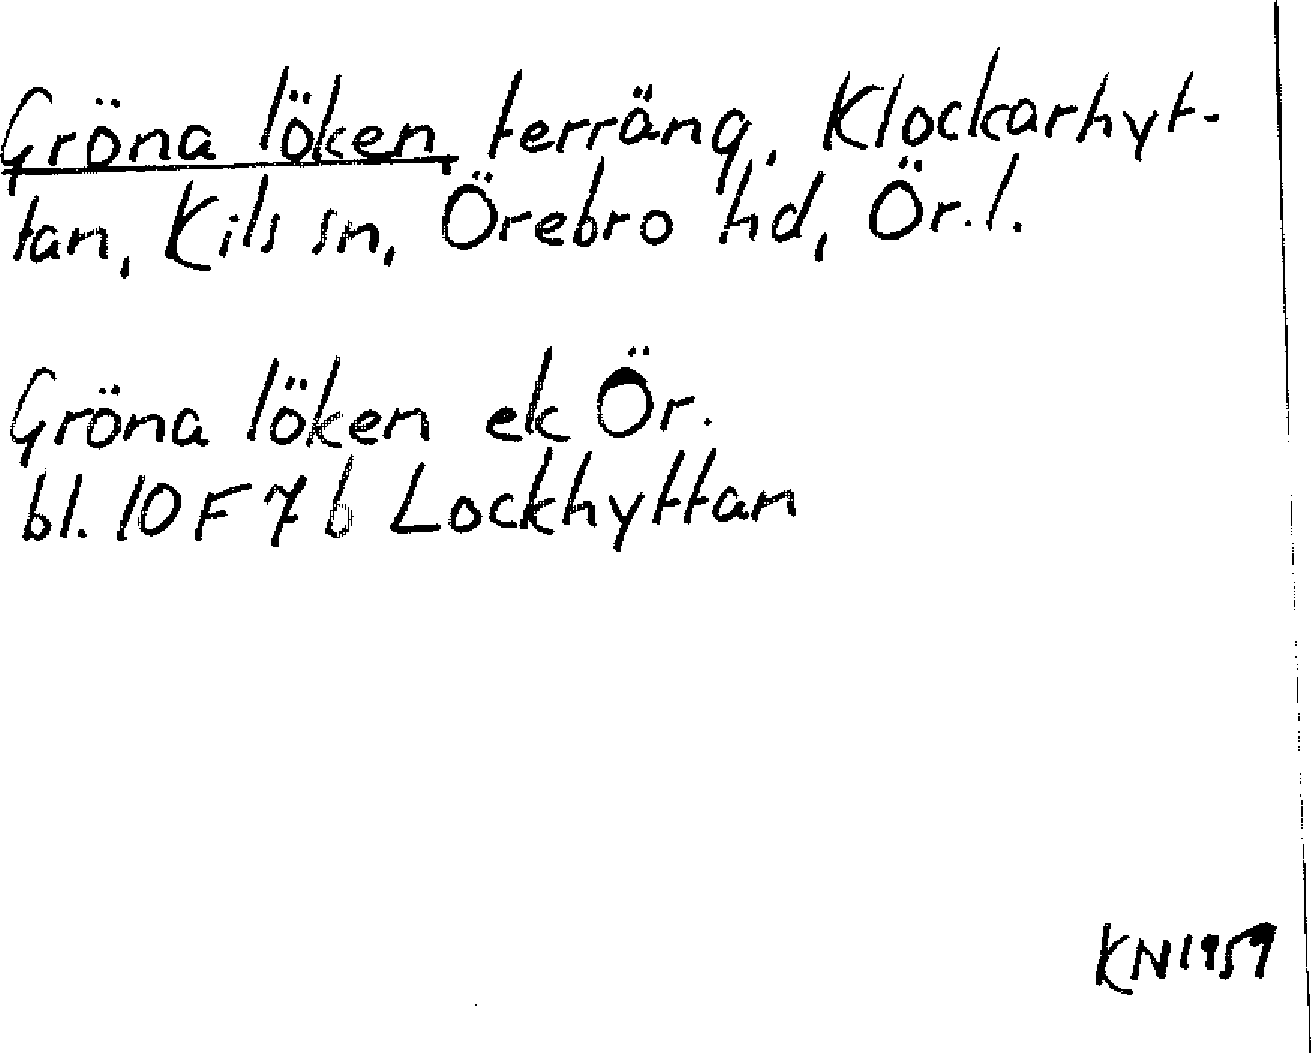 Gröna löken, terräng, Klockarhyt-
tan, Kils sn, Örebro hd, Ör. l.
Gröna löken ek Ör.
bl. 10 F 7 b Lockhyttan
KN 1959